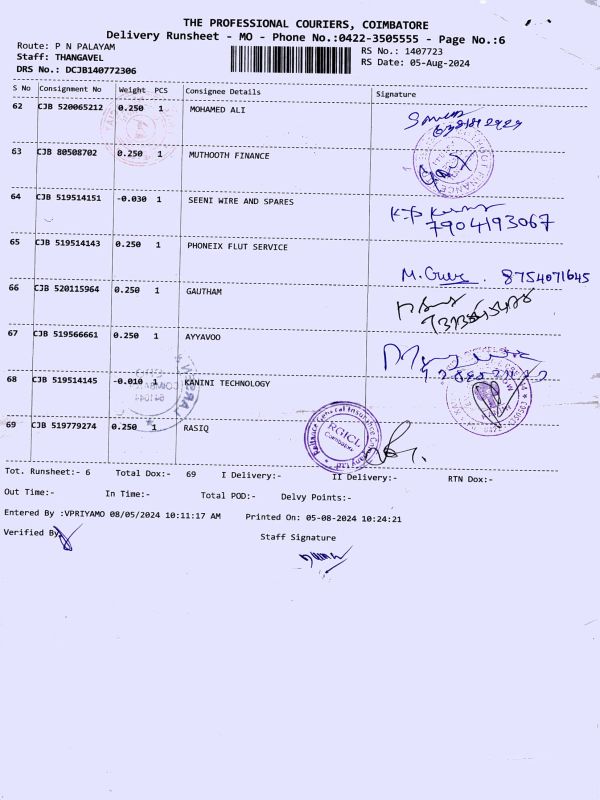 THE PROFESSIONAL COURIERS, COIMBATORE
Delivery Runsheet - MO - Phone No.:0422-3505555 - Page No.:6
Route: P N PALAYAM
Staff: THANGAVEL
DRS No.: DCJB140772306
RS No.: 1407723
RS Date: 05-Aug-2024
S No Consignment No Weight PCS Consignee Details Signature
62 CJB 520065212 0.250 1 MOHAMED ALI
63 CJB 80508702 0.250 1 MUTHOOTH FINANCE
64 CJB 519514151 -0.030 1 SEENI WIRE AND SPARES
7904193067
65 CJB 519514143 0.250 1 PHONEIX FLUT SERVICE
M. 8754071645
66 CJB 520115964 0.250 1 GAUTHAM
67 CJB 519566661 0.250 1 AYYAVOO
68 CJB 519514145 -0.010 1 KANINI TECHNOLOGY
69 CJB 519779274 0.250 1 RASIQ
Reliance General Insurance
RGICL
Coimbatore
Tot. Runsheet:- 6 Total Dox:- 69 I Delivery:- II Delivery:- RTN Dox:-
Out Time:- In Time:- Total POD:- Delvy Points:-
Entered By :VPRIYAMO 08/05/2024 10:11:17 AM Printed On: 05-08-2024 10:24:21
Verified By
Staff Signature